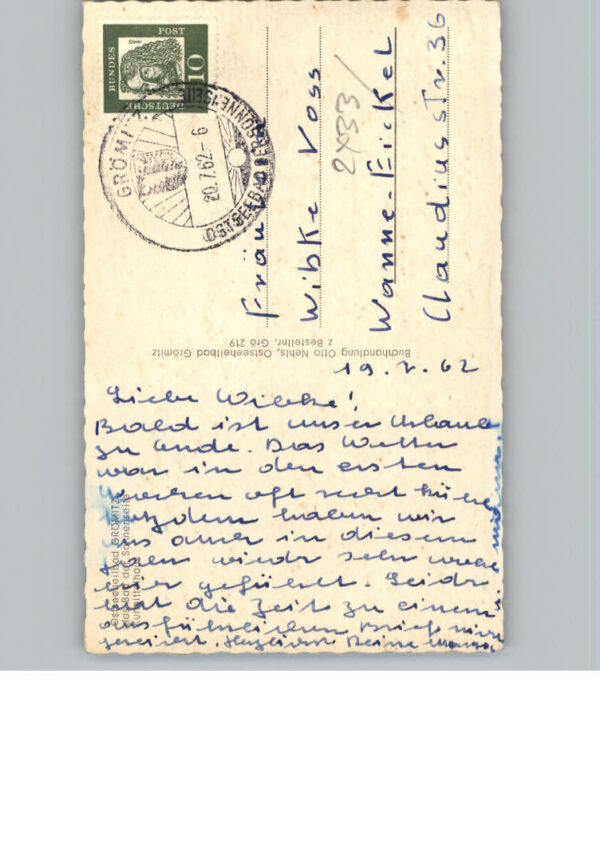 DEUTSCHE
BUNDES
POST
10
GRÖMITZ
20.7.62-6
OSTSEEBAD DER SONNENSEITE
Fräulein
Wibke Voss
2433
Wanne-Eickel
Claudiusstr. 36
Buchhandlung Otto Nehls, Ostseeheilbad Grömitz
z Bestellnr. Grö 219
Ostseeheilbad GRÖMITZ
das Bad der Sonnenseite
19.7.62
Liebe Wibke!
Bald ist unser Urlaub
zu Ende. Das Wetter
war in den ersten
Wochen oft recht kühl
trotzdem haben wir
uns aber in diesem
Jahr wieder sehr wohl
hier gefühlt. Leider
hat die Zeit zu einem
ausführlichen Brief nicht
gereicht. Herzlichst Deine